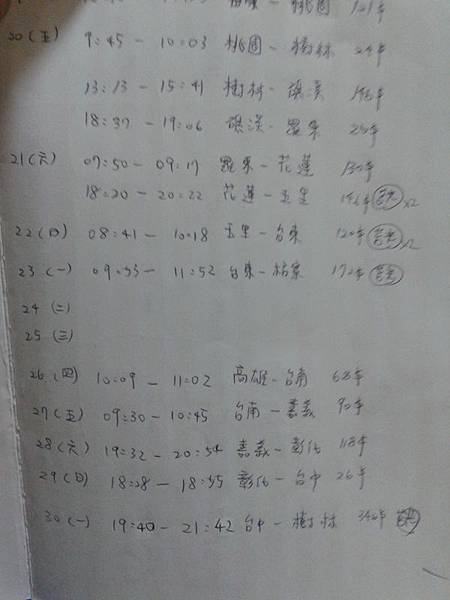 桃園 121半
20(五) 9:45 - 10:03 桃園 - 樹林 24半
13:13 - 15:41 樹林 - 礁溪
18:37 - 19:06 礁溪 - 羅東
21(六) 07:50 - 09:17 羅東 - 花蓮
18:20 - 20:22 花蓮 - 玉里 x2
22(日) 08:41 - 10:18 玉里 - 台東 120半
23(一) 09:53 - 11:52 台東 - 枋寮 172半
24(二)
25(三)
26(四) 10:09 - 11:02 高雄 - 台南 68半
27(五) 09:30 - 10:45 台南 - 嘉義 90半
28(六) 19:32 - 20:54 嘉義 - 彰化 118半
29(日) 18:28 - 18:55 彰化 - 台中 26半
30(一) 19:40 - 21:42 台中 - 樹林